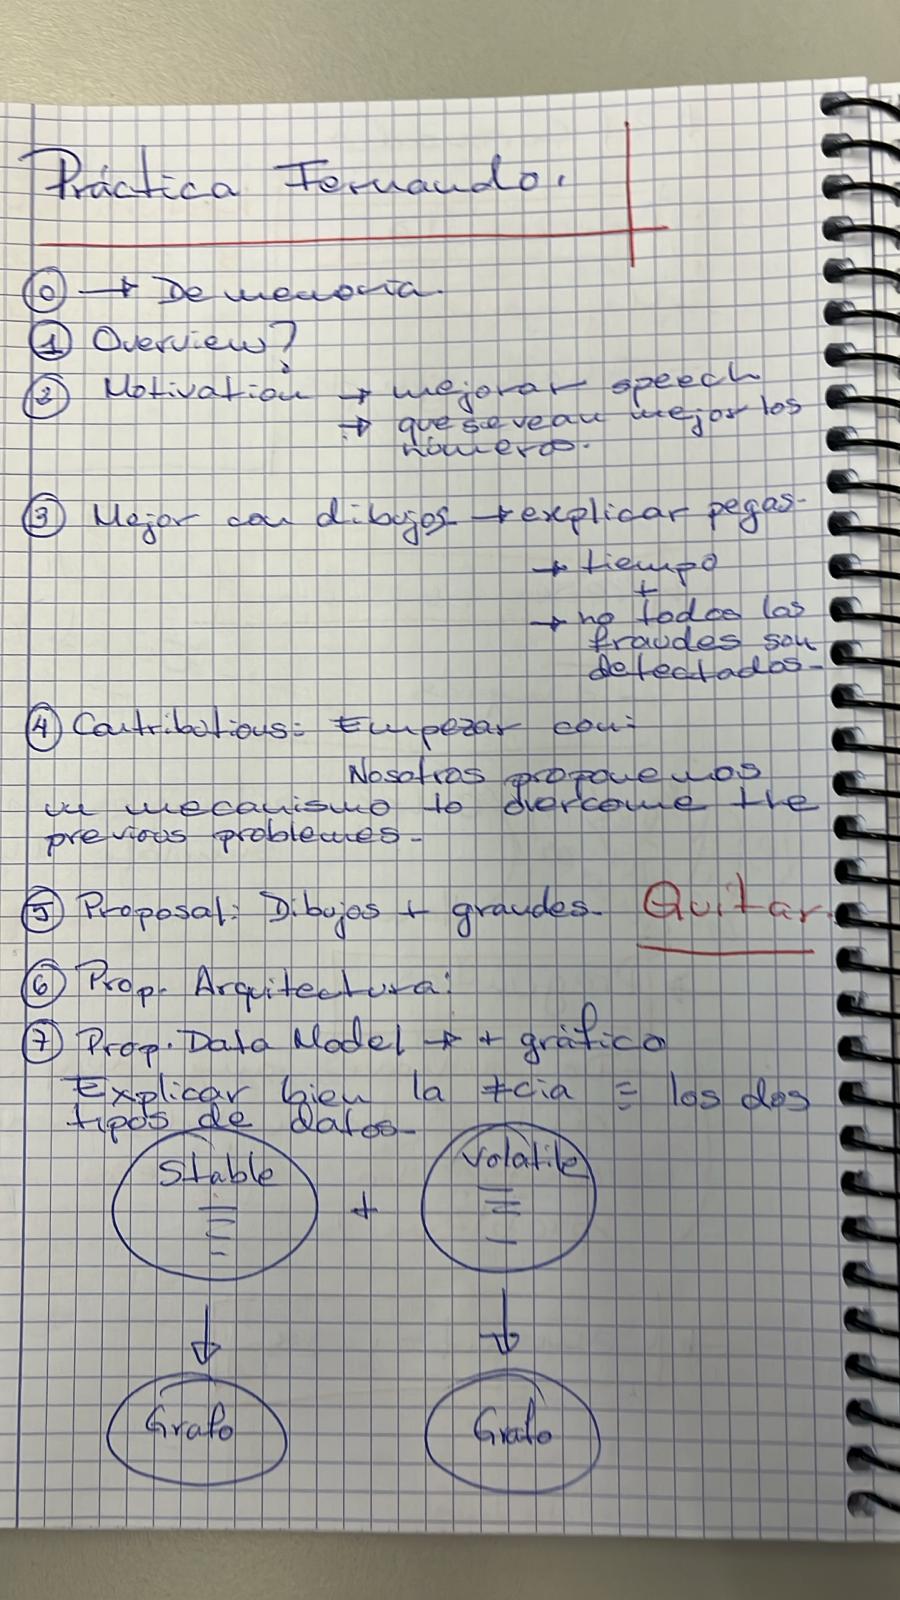 Práctica Fernando.
⓪ → De memoria.
① Overview?
② Motivation → mejorar speech
→ que se vean mejor los
números.
③ Mejor con dibujos → explicar pegas.
→ tiempo
+
→ no todos los
fraudes son
detectados.
④ Contributions: Empezar con:
Nosotros proponemos
un mecanismo to overcome the
previous problemes.
⑤ Proposal: Dibujos + grandes. Quitar.
⑥ Prop. Arquitectura:
⑦ Prop. Data Model → + gráfico
Explicar bien la ≠cia = los dos
tipos de datos.
Stable + Volatile
Grafo Grafo